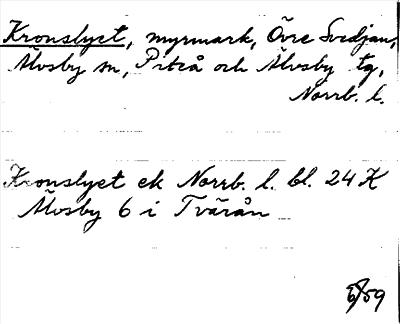 Kronslyet, myrmark, Övre Svedjan,
Älvsby sn, Piteå och Älvsby tg,
Norrb. l.
Kronslyet ek Norrb. l. bl. 24 K
Älvsby 6 i Tvärån
5/59